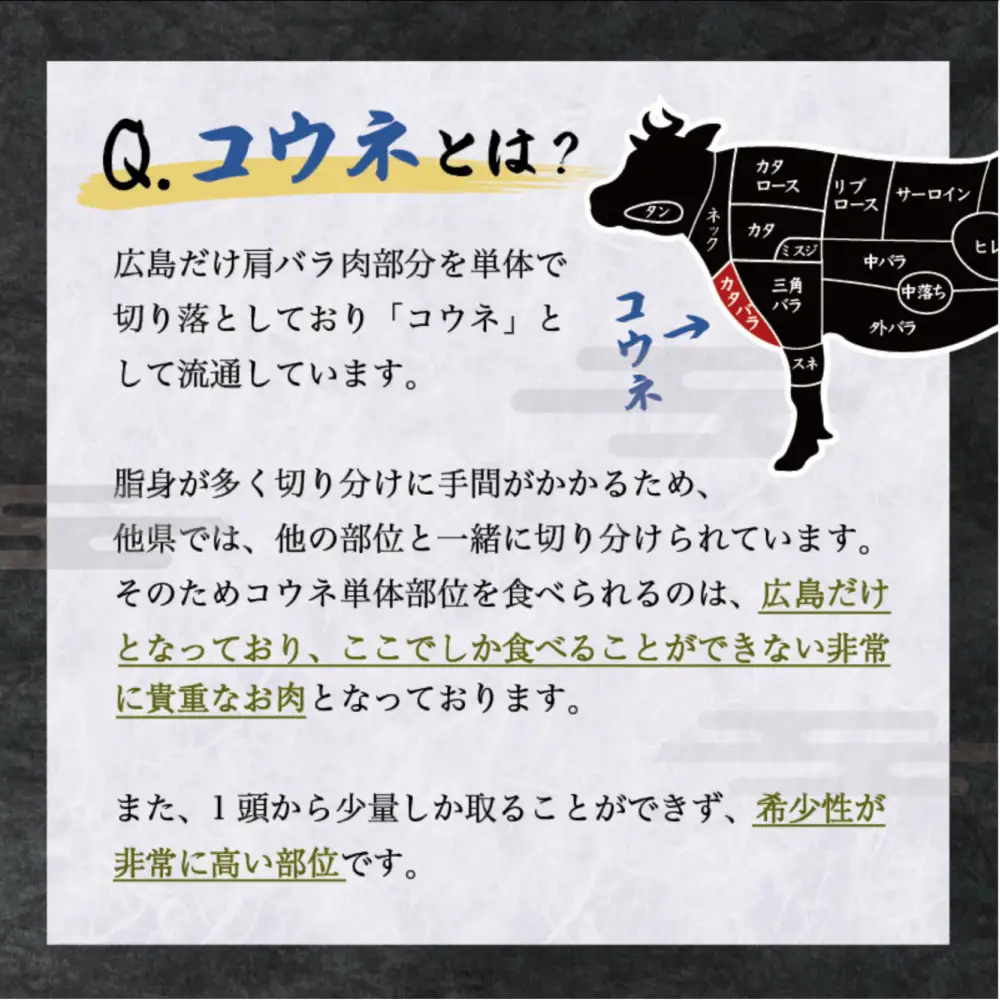 Q. コウネとは？
広島だけ肩バラ肉部分を単体で
切り落としており「コウネ」と
して流通しています。
脂身が多く切り分けに手間がかかるため、
他県では、他の部位と一緒に切り分けられています。
そのためコウネ単体部位を食べられるのは、広島だけ
となっており、ここでしか食べることができない非常
に貴重なお肉となっております。
また、1頭から少量しか取ることができず、希少性が
非常に高い部位です。
コウネ
タン
ネック
カタ
ロース
カタ
ミスジ
カタバラ
三角
バラ
スネ
リブ
ロース
サーロイン
ヒレ
中バラ
中落ち
外バラ